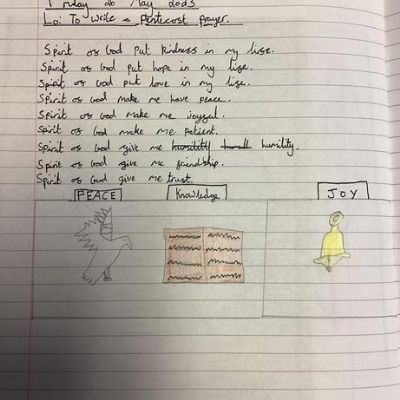 Friday 26 May 2023
L.o: To write a Pentecost prayer.
Spirit of God put kindness in my life.
Spirit of God put hope in my life.
Spirit of God put love in my life.
Spirit of God make me have peace.
Spirit of God make me joyful.
Spirit of God make me patient.
Spirit of God give me humility.
Spirit of God give me friendship.
Spirit of God give me trust.
PEACE Knowledge JOY